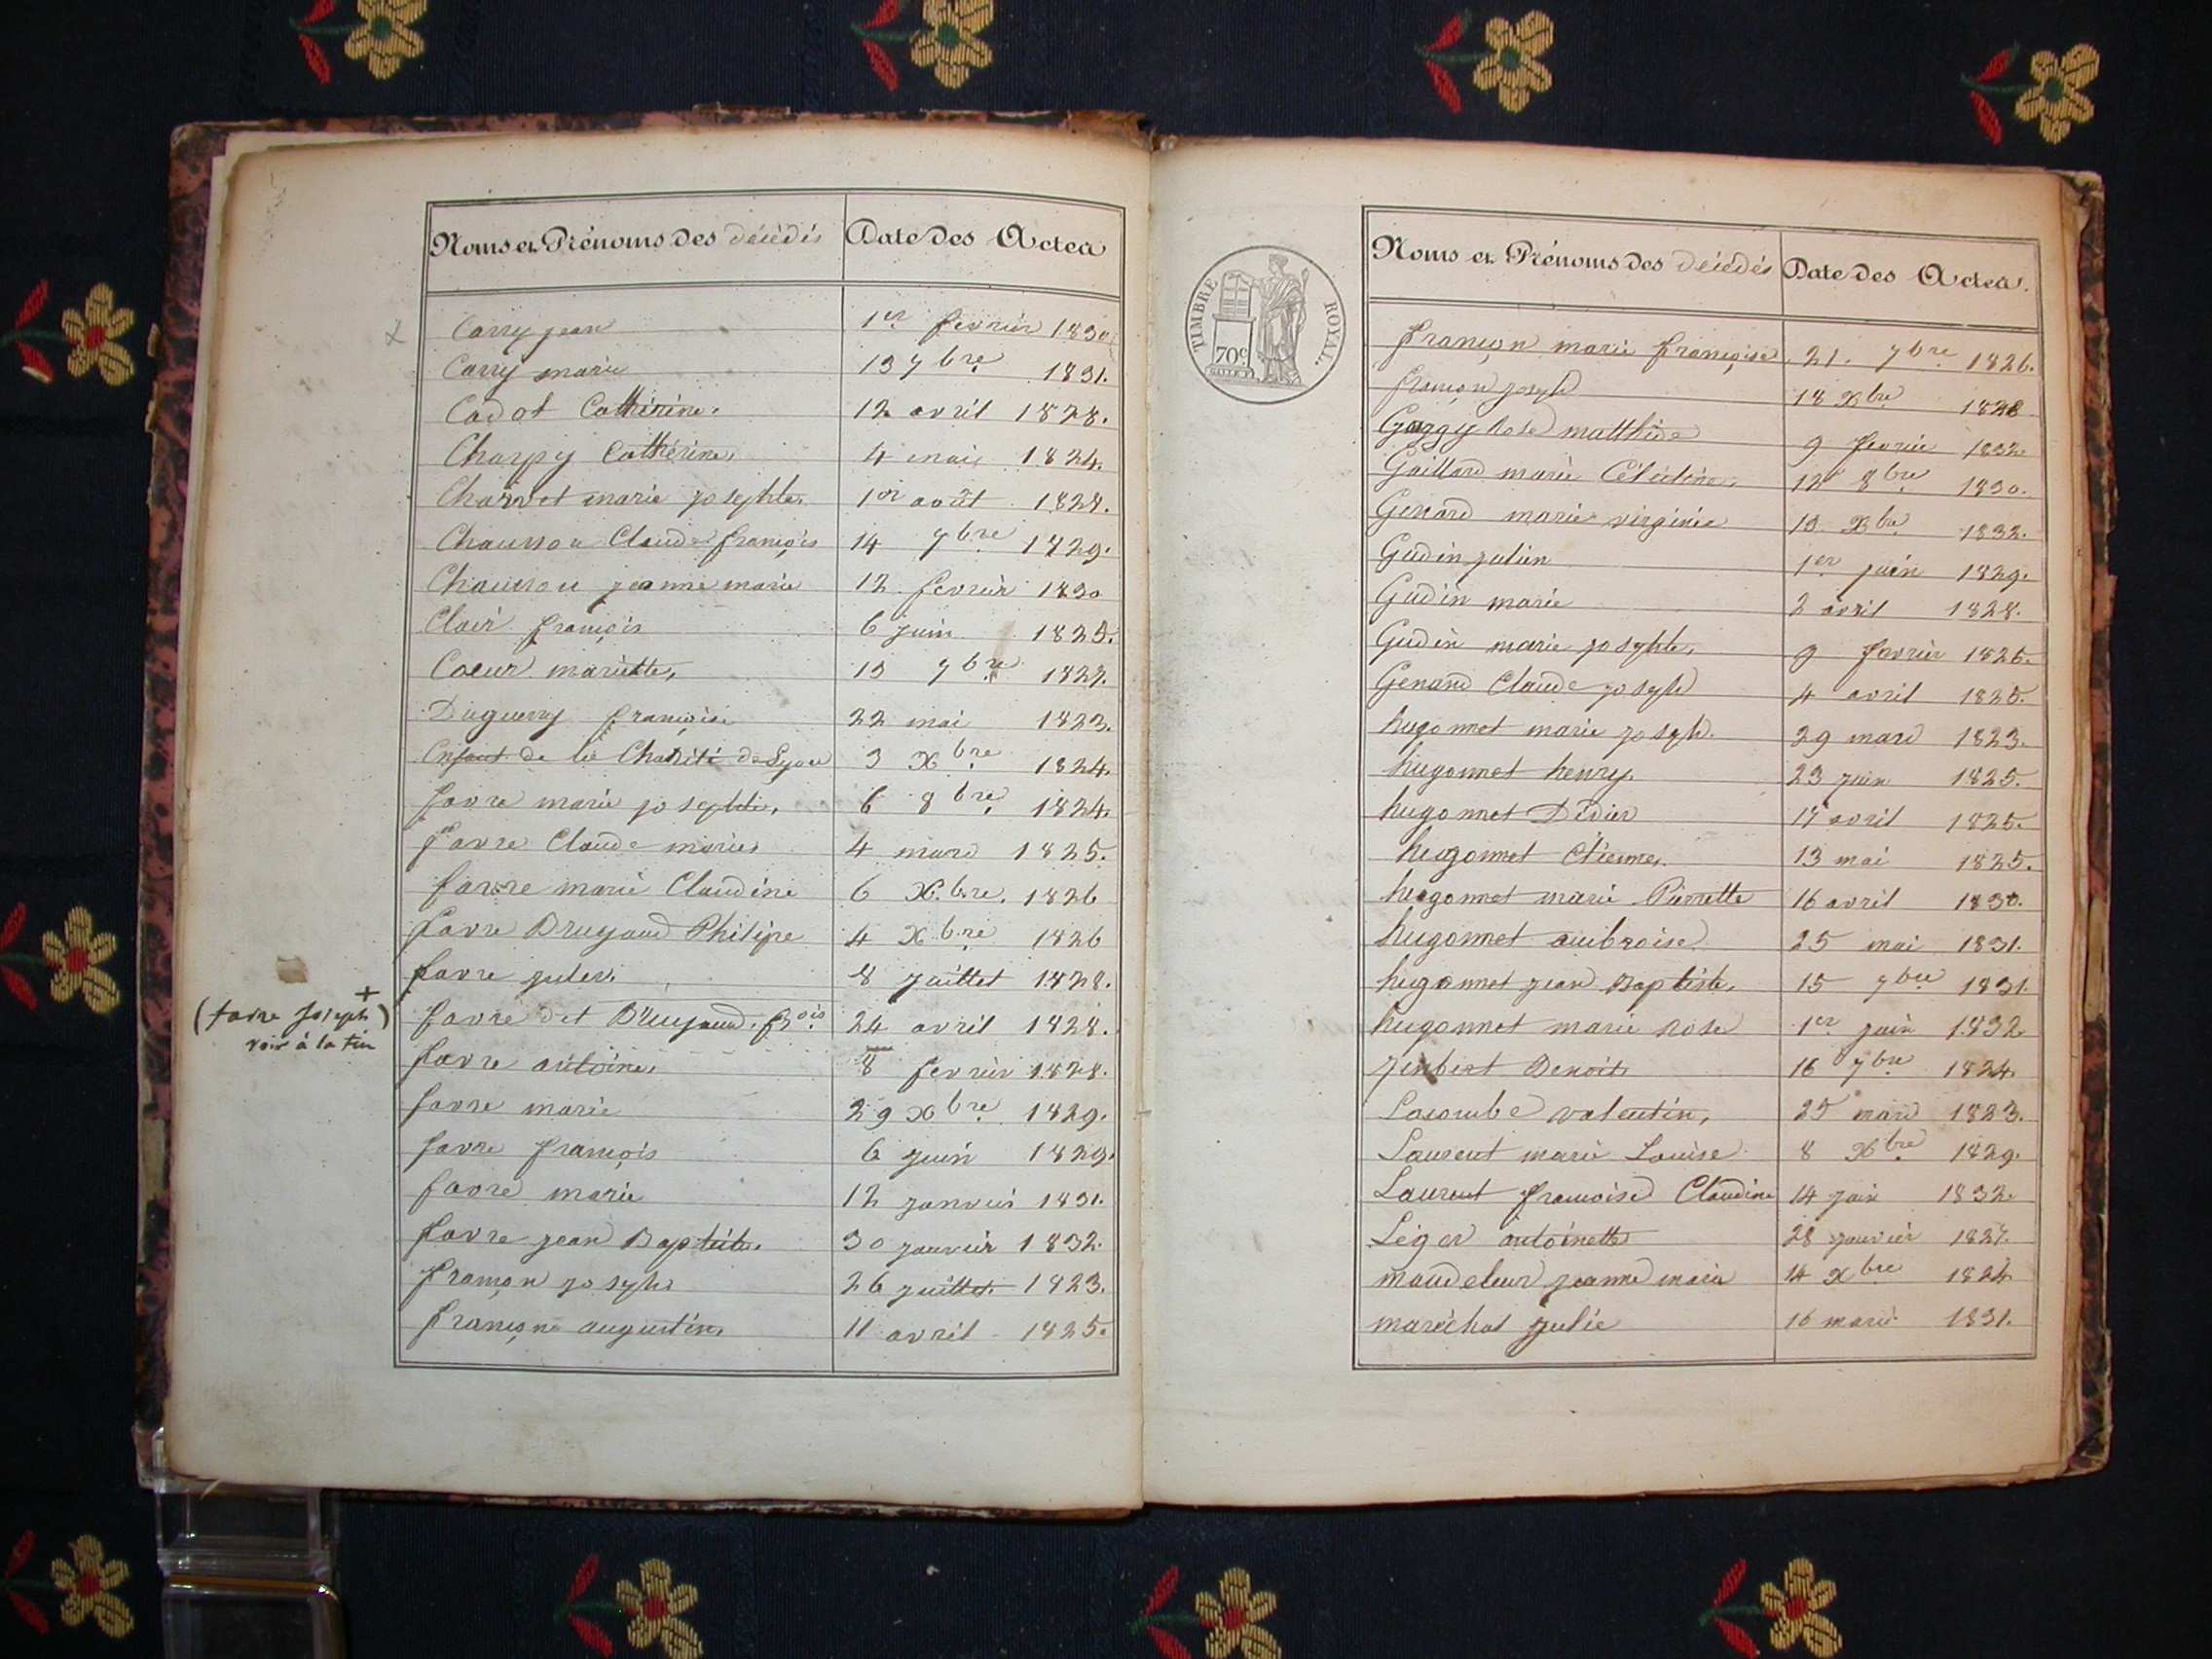 Noms et Prénoms des décédés Date des Actes
Carry jean 1er fevrier 1830
Carry marie 13 7bre 1831.
Cadot Catherine. 12 avril 1828.
Charpy Catherine, 4 mai 1824.
Charvet marie josephte. 1er août 1828.
Chausson Claude françois 14 7bre 1829.
Chausson jeanne marie 12 fevrier 1830
Clair françois 6 juin 1825.
Coeur mariette, 13 7bre 1827.
Duguerry françoise 22 mai 1823.
Enfant de la Charité de Lyon 3 Xbre 1824.
favre marie josephte, 6 8bre 1824.
favre Claude marie 4 mars 1825.
favre marie Claudine 6 Xbre. 1826
favre Bruyand Philipe 4 Xbre 1826
favre jules. 8 juillet 1828.
(favre Joseph +)
voir à la fin
favre dit Bruyand. fçois 24 avril 1828.
favre antoine, 8 fevrier 1828.
favre marie 29 Xbre 1829.
favre françois 6 juin 1829.
favre marie 12 janvier 1831.
favre jean Baptiste. 30 janvier 1832.
françon joseph 26 juillet 1823.
françon augustin, 11 avril 1825.
TIMBRE ROYAL.
70c
Noms et Prénoms des décédés Date des Actes.
françon marie françoise 21. 7bre 1826.
françon joseph 18 Xbre 1828
Gorgy Rose matthide 9 fevrier 1832.
Gaillard marie Célestine, 12 8bre 1830.
Genard marie virginie 13 Xbre 1832.
Gudin julien 1er juin 1829.
Gudin marie 2 avril 1828.
Gudin marie josephte, 9 fevrier 1826.
Genand Claude joseph 4 avril 1825.
hugonnet marie joseph. 29 mars 1823.
hugonnet henry. 23 juin 1825.
hugonnet Didier 17 avril 1825.
hugonnet Etienne. 13 mai 1825.
hugonnet marie Pierrette 16 avril 1830.
hugonnet ambroise 25 mai 1831.
hugonnet jean Baptiste, 15 7bre 1831.
hugonnet marie Rose 1er juin 1832
jenbert Benoit 16 7bre 1824.
Lacombe valentin, 25 mars 1823.
Laurent marie Louise 8 Xbre 1829.
Laurent françoise Claudine 14 juin 1832.
Léger antoinette 28 janvier 1827.
mandeleur jeanne marie 14 Xbre 1824
maréchal julie 16 mars 1831.